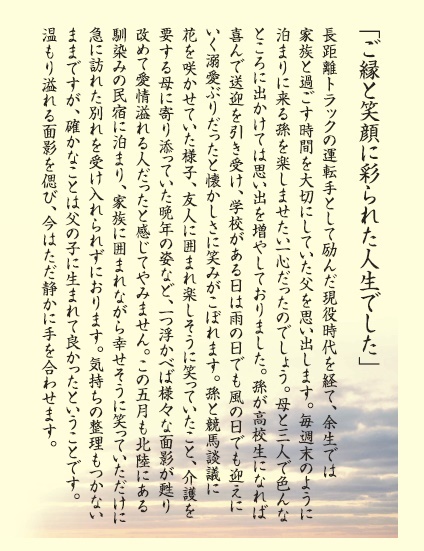 「ご縁と笑顔に彩られた人生でした」
長距離トラックの運転手として励んだ現役時代を経て、余生では
家族と過ごす時間を大切にしていた父を思い出します。毎週末のように
泊まりに来る孫を楽しませたい一心だったのでしょう。母と三人で色んな
ところに出かけては思い出を増やしておりました。孫が高校生になれば
喜んで送迎を引き受け、学校がある日は雨の日でも風の日でも迎えに
いく溺愛ぶりだったと懐かしさに笑みがこぼれます。孫と競馬談議に
花を咲かせていた様子、友人に囲まれ楽しそうに笑っていたこと、介護を
要する母に寄り添っていた晩年の姿など、一つ浮かべば様々な面影が甦り
改めて愛情溢れる人だったと感じてやみません。この五月も北陸にある
馴染みの民宿に泊まり、家族に囲まれながら幸せそうに笑っていただけに
急に訪れた別れを受け入れられずにおります。気持ちの整理もつかない
ままですが、確かなことは父の子に生まれて良かったということです。
温もり溢れる面影を偲び、今はただ静かに手を合わせます。